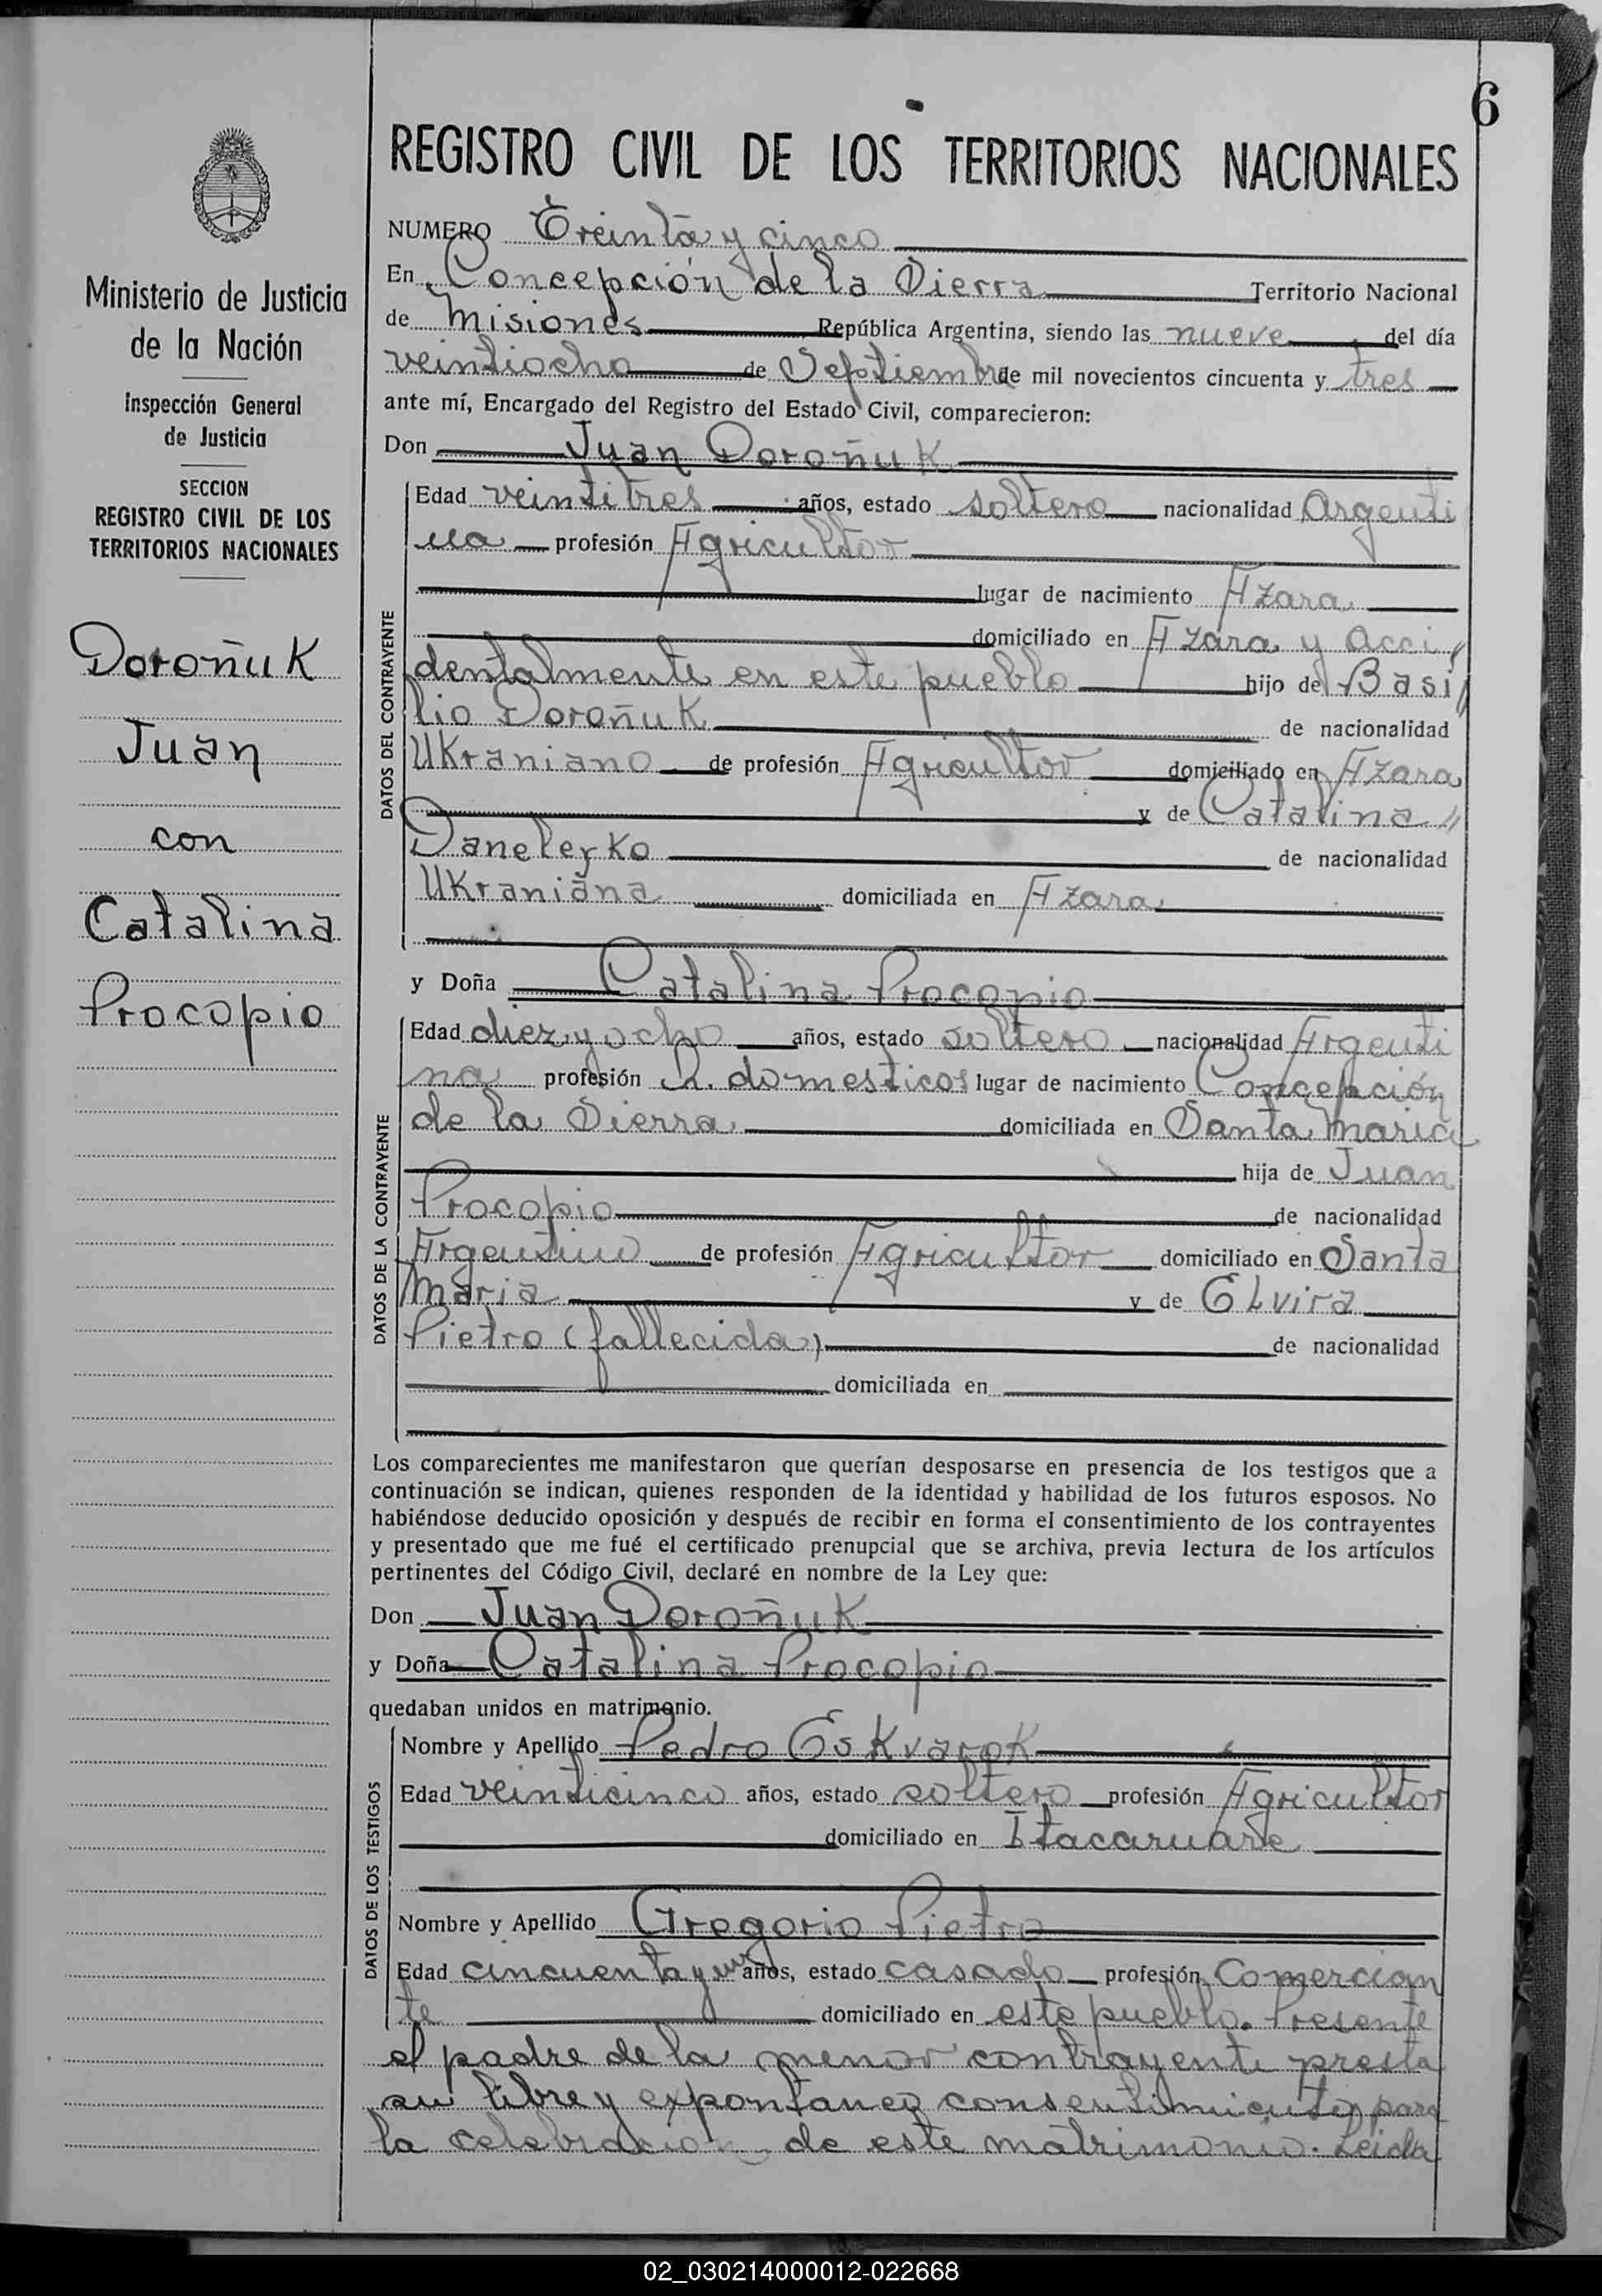 6
REGISTRO CIVIL DE LOS TERRITORIOS NACIONALES
Ministerio de Justicia
de la Nación
Inspección General
de Justicia
SECCION
REGISTRO CIVIL DE LOS
TERRITORIOS NACIONALES
Doroñuk
Juan
con
Catalina
Procopio
NUMERO Treinta y cinco
En Concepción de la Sierra Territorio Nacional
de Misiones República Argentina, siendo las nueve del día
veintiocho de Septiembre de mil novecientos cincuenta y tres
ante mí, Encargado del Registro del Estado Civil, comparecieron:
Don Juan Doroñuk
DATOS DEL CONTRAYENTE
Edad veintitres años, estado soltero nacionalidad Argenti
na profesión Agricultor
lugar de nacimiento Azara
domiciliado en Azara y acci
dentalmente en este pueblo hijo de Basi
lio Doroñuk de nacionalidad
Ukraniano de profesión Agricultor domiciliado en Azara
y de Catalina
Daneleyko de nacionalidad
Ukraniana domiciliada en Azara
y Doña Catalina Procopio
DATOS DE LA CONTRAYENTE
Edad diez y ocho años, estado soltero nacionalidad Argenti
na profesión Q. domesticos lugar de nacimiento Concepción
de la Sierra domiciliada en Santa Maria
hija de Juan
Procopio de nacionalidad
Argentino de profesión Agricultor domiciliado en Santa
Maria y de Elvira
Pietro (fallecida) de nacionalidad
domiciliada en
Los comparecientes me manifestaron que querían desposarse en presencia de los testigos que a
continuación se indican, quienes responden de la identidad y habilidad de los futuros esposos. No
habiéndose deducido oposición y después de recibir en forma el consentimiento de los contrayentes
y presentado que me fué el certificado prenupcial que se archiva, previa lectura de los artículos
pertinentes del Código Civil, declaré en nombre de la Ley que:
Don Juan Doroñuk
y Doña Catalina Procopio
quedaban unidos en matrimonio.
DATOS DE LOS TESTIGOS
Nombre y Apellido Pedro Eskvarok
Edad veinticinco años, estado soltero profesión Agricultor
domiciliado en Itacaruare
Nombre y Apellido Gregorio Pietro
Edad cincuenta y un años, estado casado profesión Comercian
te domiciliado en este pueblo. Presente
el padre de la menor contrayente presta
su libre y expontaneo consentimiento para
la celebracion de este matrimonio. Leida
02_030214000012-022668